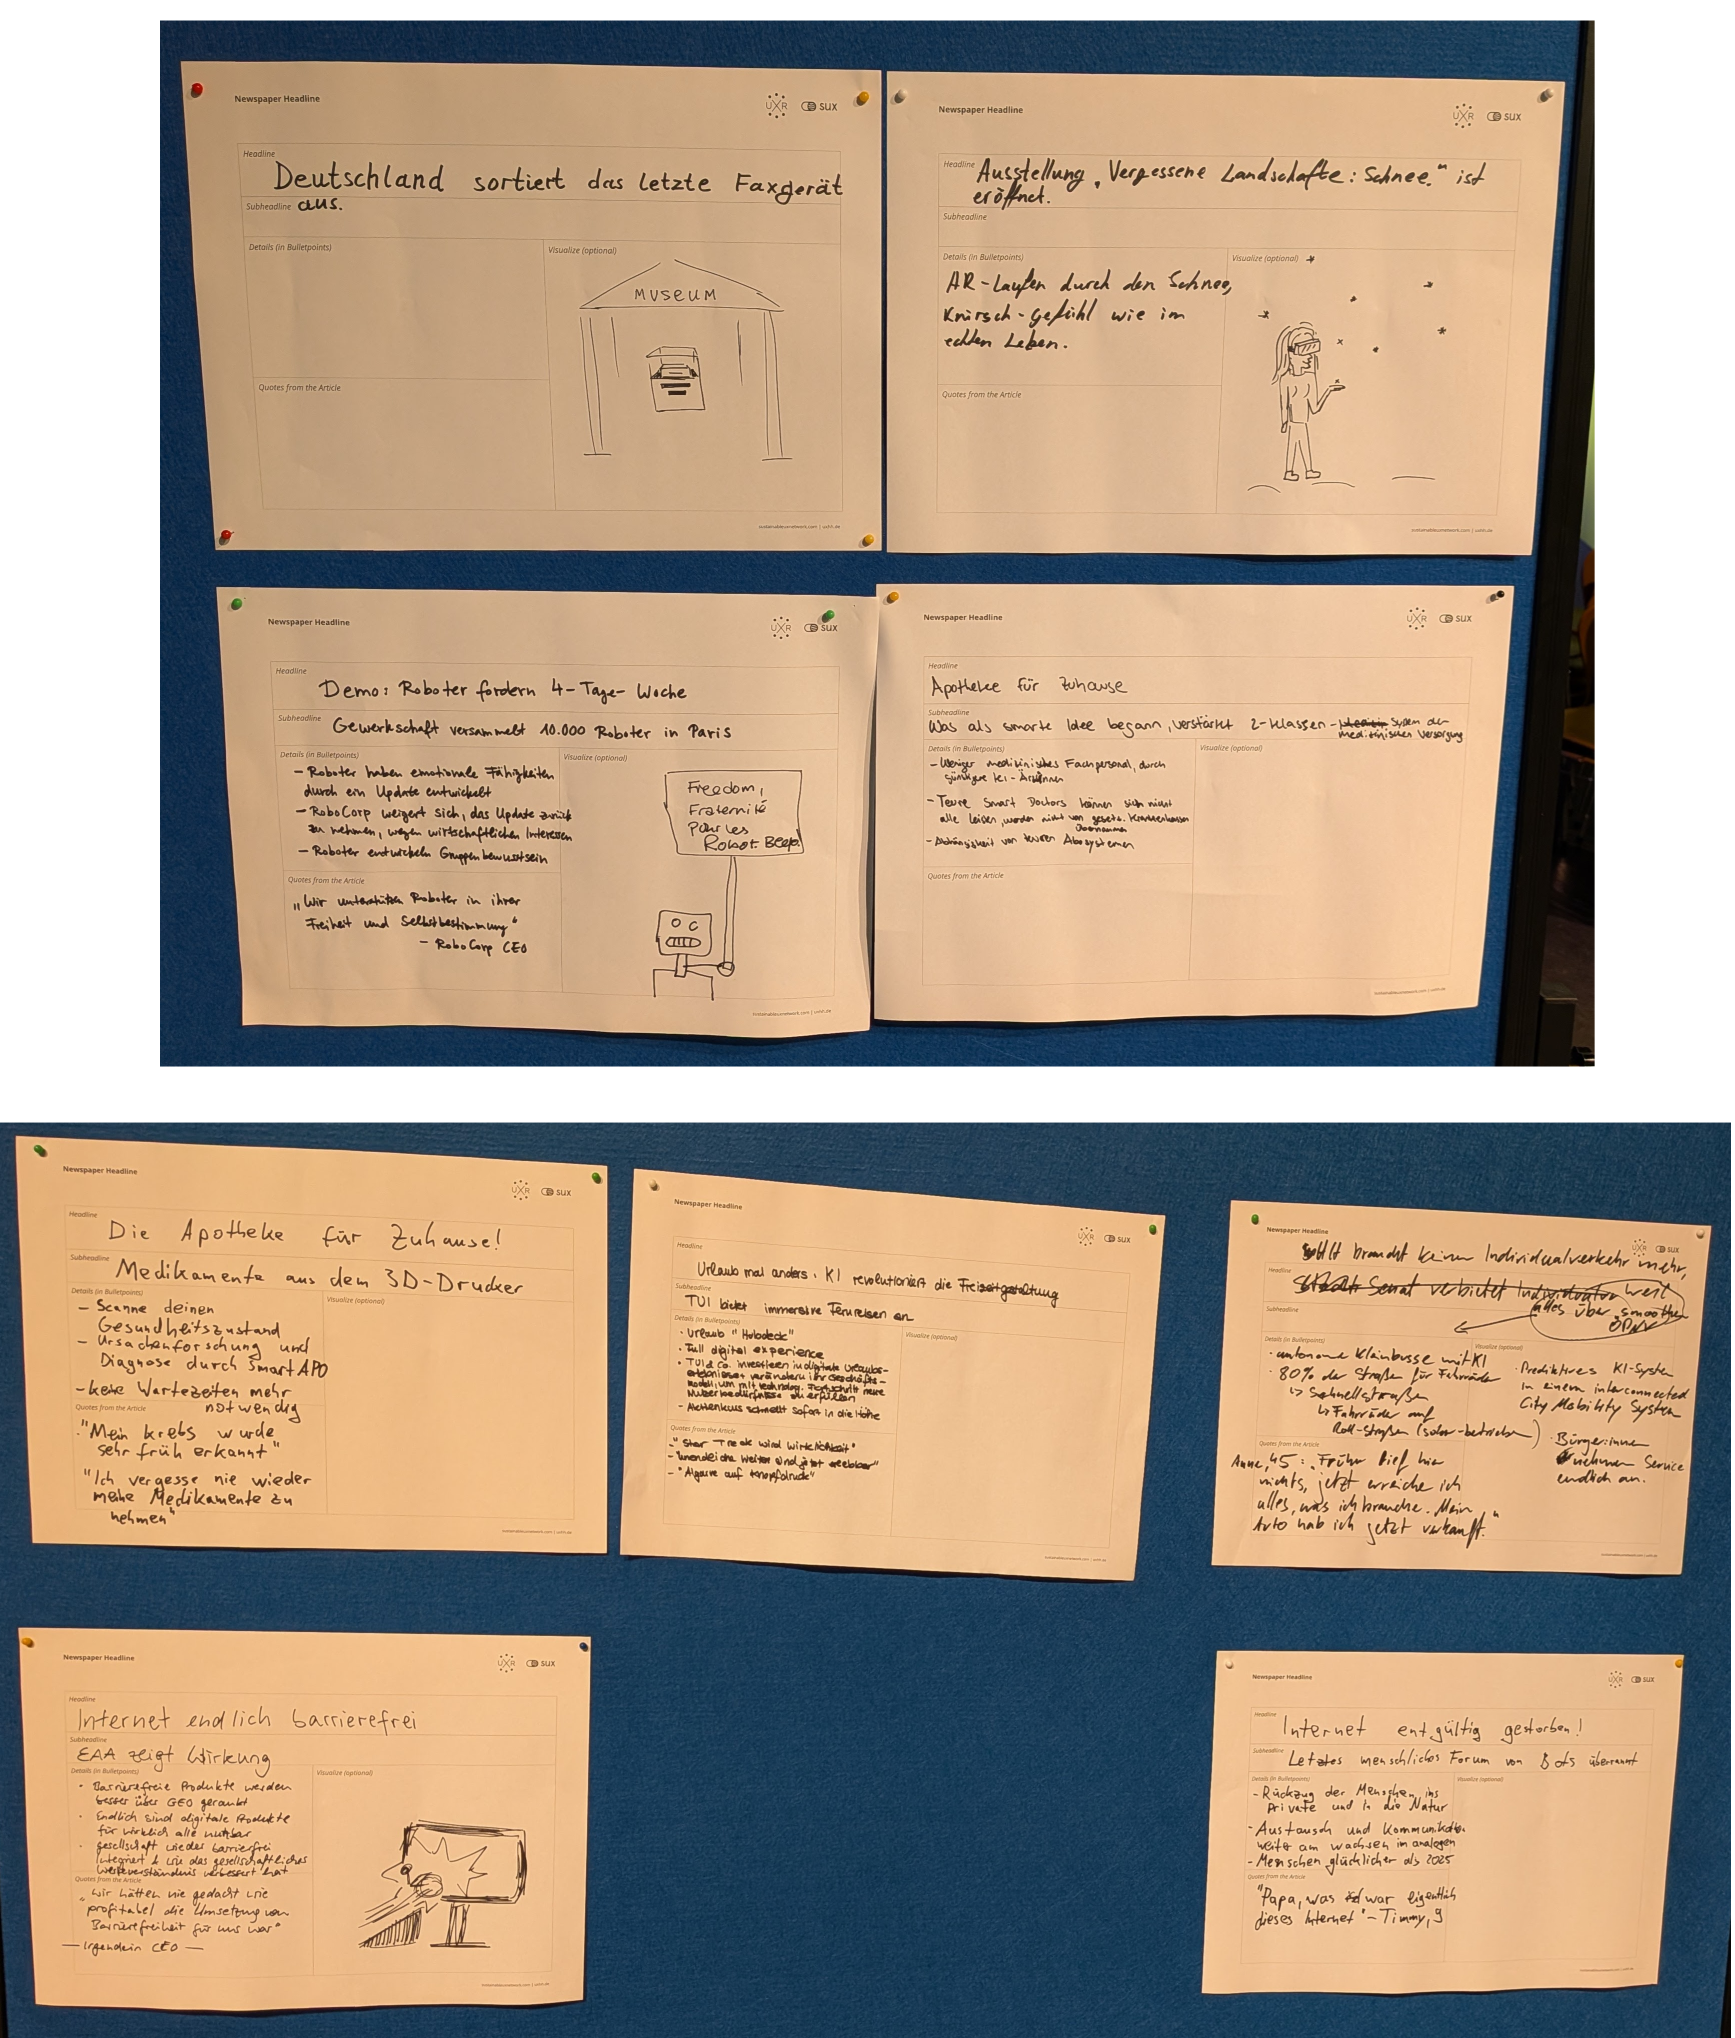 Newspaper Headline
UXR
sux
Headline
Deutschland sortiert das letzte Faxgerät
aus.
Subheadline
Details (in Bulletpoints)
Visualize (optional)
MUSEUM
Quotes from the Article
sustainableuxnetwork.com | uxhh.de
Newspaper Headline
UXR
sux
Headline
Ausstellung „Vergessene Landschafte: Schnee." ist
eröffnet.
Subheadline
Details (in Bulletpoints)
AR-Laufen durch den Schnee,
Knirsch-gefühl wie im
echten Leben.
Visualize (optional)
Quotes from the Article
sustainableuxnetwork.com | uxhh.de
Newspaper Headline
UXR
sux
Headline
Demo: Roboter fordern 4-Tage-Woche
Subheadline
Gewerkschaft versammelt 10.000 Roboter in Paris
Details (in Bulletpoints)
- Roboter haben emotionale Fähigkeiten
durch ein Update entwickelt
- RoboCorp weigert sich, das Update zurück
zu nehmen, wegen wirtschaftlichen Interessen
- Roboter entwickeln Gruppenbewusstsein
Visualize (optional)
Freedom,
Fraternité
Pour les
Robot Beep!
Quotes from the Article
„Wir unterstützen Roboter in ihrer
Freiheit und Selbstbestimmung"
- RoboCorp CEO
sustainableuxnetwork.com | uxhh.de
Newspaper Headline
UXR
sux
Headline
Apotheke für Zuhause
Subheadline
Was als smarte Idee begann, verstärkt 2-Klassen-System der
medizinischen Versorgung
Details (in Bulletpoints)
- Weniger medizinisches Fachpersonal, durch
günstigere KI-Ärztinnen
- Teure Smart Doctors können sich nicht
alle leisten, werden nicht von gesetz. Krankenkassen
übernommen
- Abhängigkeit von teuren Abosystemen
Visualize (optional)
Quotes from the Article
sustainableuxnetwork.com | uxhh.de
Newspaper Headline
UXR
sux
Headline
Die Apotheke für Zuhause!
Subheadline
Medikamente aus dem 3D-Drucker
Details (in Bulletpoints)
- Scanne deinen
Gesundheitszustand
- Ursachenforschung und
Diagnose durch SmartAPO
- keine Wartezeiten mehr
notwendig
Visualize (optional)
Quotes from the Article
"Mein Krebs wurde
sehr früh erkannt"
"Ich vergesse nie wieder
meine Medikamente zu
nehmen"
sustainableuxnetwork.com | uxhh.de
Newspaper Headline
UXR
sux
Headline
Urlaub mal anders. KI revolutioniert die Freizeitgestaltung
Subheadline
TUI bietet immersive Fernreisen an
Details (in Bulletpoints)
· Urlaub "Holodeck"
· Full digital experience
· TUI & Co. investieren in digitale Urlaubs-
erlebnisse + verändern ihr Geschäfts-
modell, um mit technolog. Fortschritt neue
Nutzerbedürfnisse zu erfüllen
- Aktienkurs schnellt sofort in die Höhe
Visualize (optional)
Quotes from the Article
- "Star Treck wird Wirklichkeit"
- "unendliche Weiten sind jetzt erlebbar"
- "Algarve auf Knopfdruck"
sustainableuxnetwork.com | uxhh.de
Newspaper Headline
UXR
sux
braucht keinen Individualverkehr mehr,
Headline
Senat verbietet weil
alles über smoothen
ÖPNV
Subheadline
Details (in Bulletpoints)
· autonome Kleinbusse mit KI
· 80% der Straßen für Fahrräder
↳ Schnellstraßen
↳ Fahrräder auf
Roll-Straßen (solar-betrieben)
Visualize (optional)
· Prediktives KI-System
in einem interconnected
City Mobility System
· Bürger:innen
nehmen Service
endlich an.
Quotes from the Article
Anne, 45: „Früher lief hier
nichts, jetzt erreiche ich
alles, was ich brauche. Mein
Auto hab ich jetzt verkauft."
sustainableuxnetwork.com | uxhh.de
Newspaper Headline
UXR
sux
Headline
Internet endlich barrierefrei
Subheadline
EAA zeigt Wirkung
Details (in Bulletpoints)
· Barrierefreie Produkte werden
besser über GEO gerankt
· Endlich sind digitale Produkte
für wirklich alle nutzbar
· gesellschaft wieder barrierefrei
integriert & wie das gesellschaftliches
Werteverständnis verbessert hat
Visualize (optional)
Quotes from the Article
„Wir hätten nie gedacht wie
profitabel die Umsetzung von
Barrierefreiheit für uns war"
— Irgendein CEO —
sustainableuxnetwork.com | uxhh.de
Newspaper Headline
UXR
sux
Headline
Internet entgültig gestorben!
Subheadline
Letztes menschliches Forum von Bots überrannt
Details (in Bulletpoints)
- Rückzug der Menschen ins
Private und in die Natur
- Austausch und Kommunikation
weiter am wachsen im analogen
- Menschen glücklicher als 2025
Visualize (optional)
Quotes from the Article
"Papa, was war eigentlich
dieses Internet" - Timmy, 9
sustainableuxnetwork.com | uxhh.de